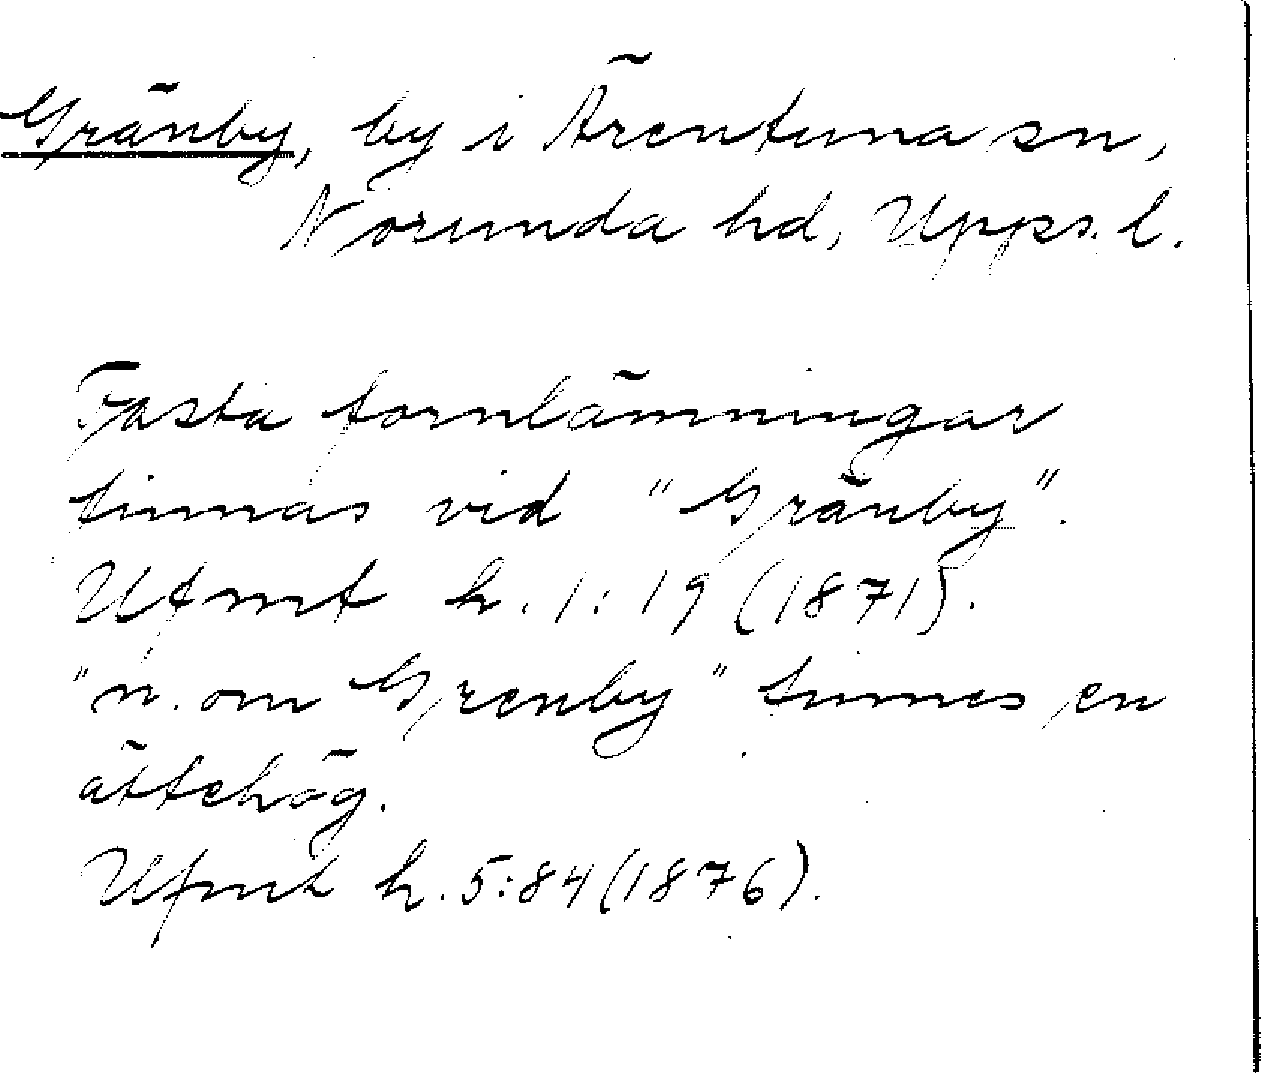 Gränby, by i Ärentuna sn,
Norunda hd, Upps. l.
Fasta fornlämningar
finnas vid "Gränby".
Ufmt h. 1: 19 (1871).
"n. om Grenby" finnes en
ättehög.
Ufmt h. 5: 84 (1876).